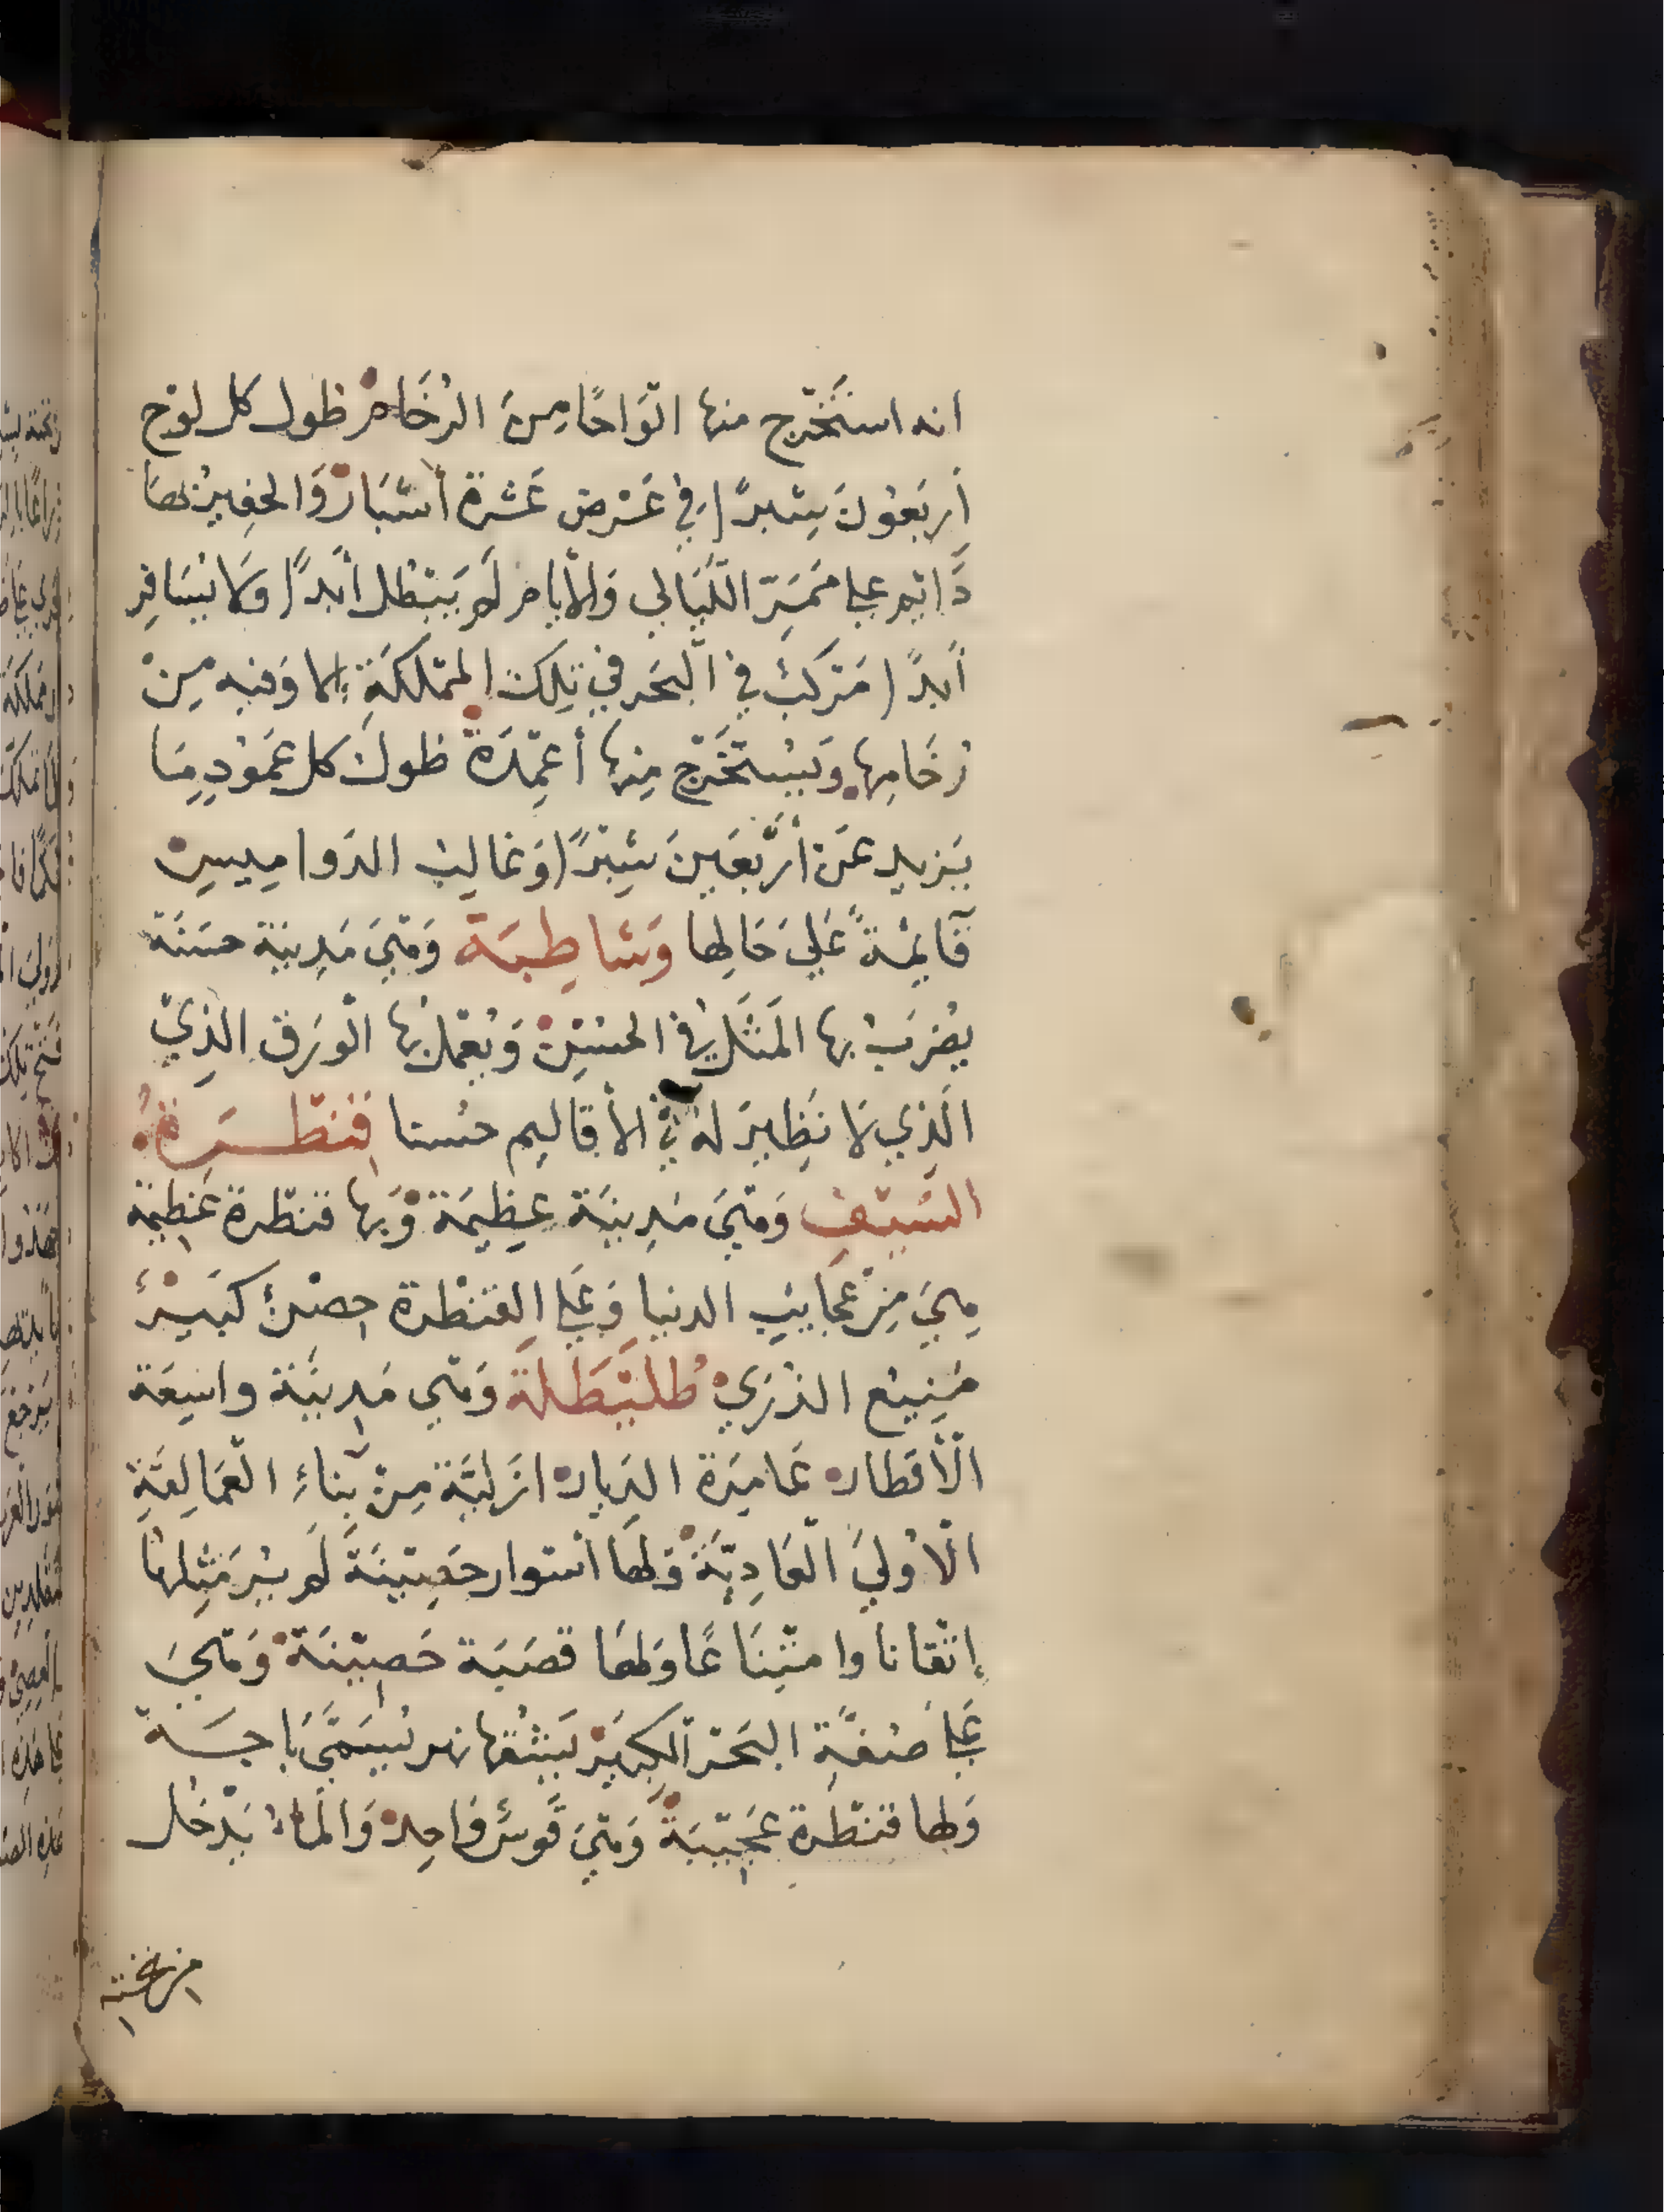 انه استَخْرج منها الْوَاحًا مِنَ الرُخَامْ طول كل لوْح
أربَعُونَ شِبرًا في عَرْض عَشرة أشبَارْ وَالحفِيرُ بهَا
دَايم علي مَمَرّ اللّيَالي وَالأيام لَم يَبْطل أبَدًا وَلا يُسَافِر
أبدًا مَرْكَبْ في الْبَحَر في تِلكَ المْملكَةِ إلا وَفيه مِنْ
رُخَامِها وَيُسْتَخْرَج مِنها أعْمِدَة طولُ كل عَمُودٍ مِمَا
يَزيد عَن أرْبَعَينَ شِبْرًا وَغَالِبُ الدَوامِيسِ
قَايمةً عَليَ حَالِها وَشاطِبَة وَهْيَ مَدِينَة حسَنَة
يضْرَبْ بها المَثَل في الحسْنِ وَيُعْمَل بُها الْوَرَق الذِيْ
الَذِي لَا نَظِيرَ لهُ في الأقاليم حُسنا قَنْطَرة
السَّيْف وَهْيَ مَدِينَة عظِيمَة وَبها قنطْرة عَظيمَة
هِيَ مِنْ عَجَايبِ الدنيا وَعَلي القَنْطرة حِصْنٌ كَبيْرٌ
مَنِيْع الذرَيْ طُليْطَلَة وَهْي مَدِينَة واسِعَة
الْأقطار عَامِرَة الدِيار ازَليَّة مِنْ بنَاءِ الْعَمَالِقَةِ
الْاوْليَ الْعَادِيَّةَ وَلهَا أسْوار حَصِيْنَةَ لَم يُرَ مَثِلهَا
إتْقانا وامْتِنَاعًا وَلهَا قصَبَة حَصِيْنَة وَهْيَ
عَليَ ضفَّة البَحَر الْكِبَيْر يَشُقها نهر يُسَمَّيَ بَاجَة
وَلها قنْطَرة عَجِيْبَة وَهْيَ قَوسٌ وَاحِد وَالْمَاءُ يَدْخُل
من تحته